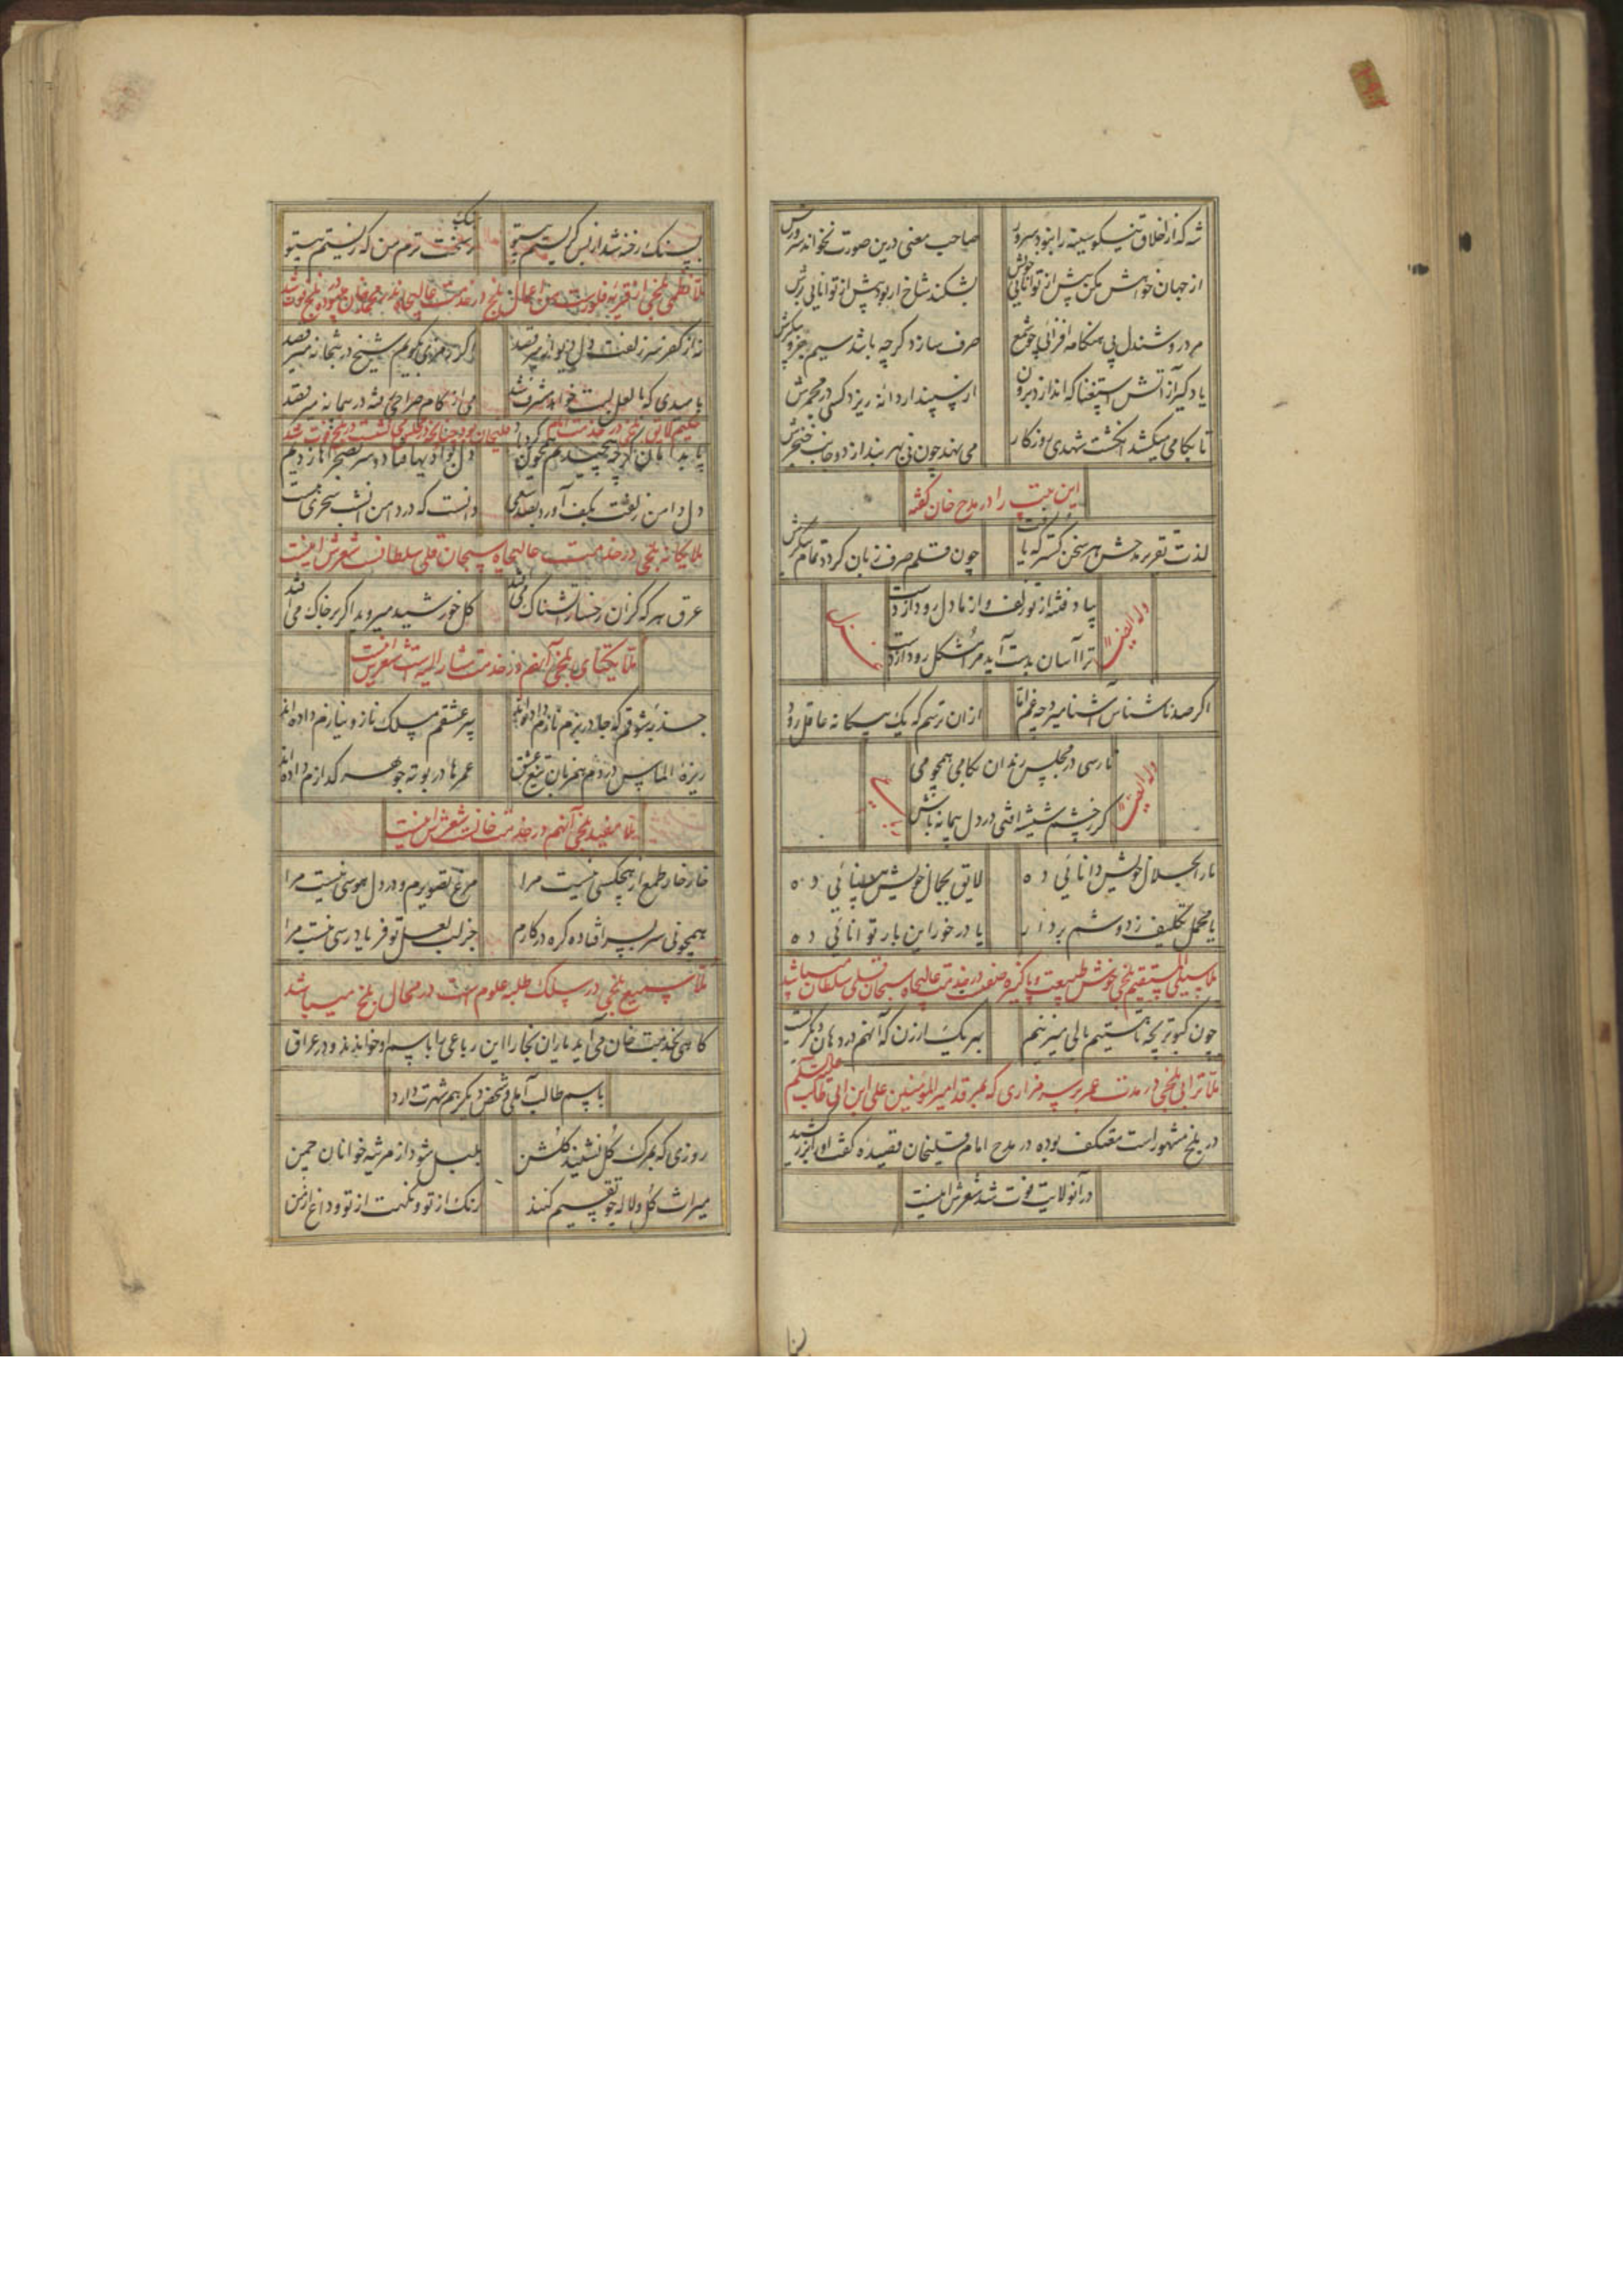 شه که از اخلاق نیکو سینه را نبود سرور
صاحب معنی درین صورت نخواند سرورش
از جهان خواهش مکن بیش از توانایی خویش
بشکند شاخ ار بود بیش از توانایی برش
مرد روشندل پی هنگامه افزائی چو شمع
صرف سازد گرچه باشد سیم جزو پیکرش
یاد گیر از آتش استغنا که اندازد برون
از سپند ار دانه ریزد کسی در مجمرش
تا بکامی میکشد انگشت شهدی روزگار
می نهد چون نی بهر بند از دو جانب خنجرش
این بیت را در مدح خان گفته
لذت تقریر مدحش هر سخن گستر که یافت
چون قلم صرف زبان گردد تمام پیکرش
وله ایضا
بیاد فتنه از تو زلف و از ما دل رود از دست
ترا آسان بدست آید مرا مشکل رود از دست
اگر صد ناشناس آشنا میرد چه غم اما
ازان ترسم که یک بیگانه عاقل رود
وله ایضا
تا رسی در مجلس رندان بکامی همچو می
گر ز چشم شیشه افتی در دل پیمانه باش
یارب بجلال خویش دانائی ده
لایق بجمال خویش بینائی ده
یا محمل تکلیف ز دوشم بردار
یا در خور این بار توانائی ده
ملا سبیلی مستقیم بلخی خوش طبیعت و پاکیزه صفت در خدمت عالیجاه سبحان قلی سلطان میباشد
چون کبوتر بچه تا هستیم بالی میزنیم
بهر یک ارزن که آنهم در دهان دیگریست
ملا ترابی بلخی در مدت عمر بر سر مزاری که بمرقد امیرالمؤمنین علی ابن ابی طالب علیه السلم
در بلخ مشهور است معتکف بوده در مدح امام قلیخان قصیده گفت او را بزر کشید
در آن ولایت فوت شد شعرش اینست
بسنگ رخنه شد از بس گریستم بیتو
ز سنگ سخت ترم من که زیستم بیتو
ملا نظمی بلخی از قریه من اعمال بلخ در خدمت عالیجاه نذر محمد خان میبوده در بلخ فوت شد
نه از کفر سر زلفت دل دیوانه میرقصد
اگر رمزی بگویم شیخ در بتخانه میرقصد
بامیدی که با لعل لبت خواهد مشرف شد
می از کام صراحی رفته در پیمانه میرقصد
حکیم لایق بلخی در خدمت امام قلیخان بود در بلخ فوت شد
دل دامن زلفت بکف آورد بصد سعی
دانست که در دامن شب سحری هست
ملا یگانه بلخی در خدمت عالیجاه سبحان قلی سلطانست شعرش اینست
عرق هرگه کزان رخسار آتشناک می افتد
گل خورشید میروید اگر بر خاک می افتد
ملا یکتای بلخی آنهم در خدمت مشار الیه است شعرش اینست
جذبهٔ شوقم که جا در بزم نازم داده اند
پیر عشقم سلک ناز و نیازم داده اند
ریزهٔ الماس دردم همزبان تیغ عشق
عمرها در بوتهٔ جوهر گدازم داده اند
ملا مفید بلخی آنهم در خدمت خانست شعرش اینست
خار خار طمع از هیچکسی نیست مرا
مرغ تصویرم و در دل هوسی نیست مرا
همچو نی سر بسر افتاده گره در کارم
جز لب لعل تو فریادرسی نیست مرا
ملا سمیع بلخی در سلک طلبه علوم است در محال بلخ میباشد
گاهی بخدمت خان می آید یاران بخارا این رباعی را باسم او خواندند و در عراق
باسم طالب آملی و شخص دیگر هم شهرت دارد
روزی که بمرگ گل نشیند گلشن
بلبل شود از مرثیه خوانان چمن
میراث گل و لاله چو تقسیم کنند
رنگ از تو و نکهت از تو و داغ از من